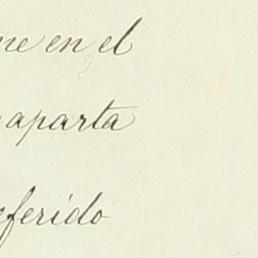 ne en el
aparta
eferido